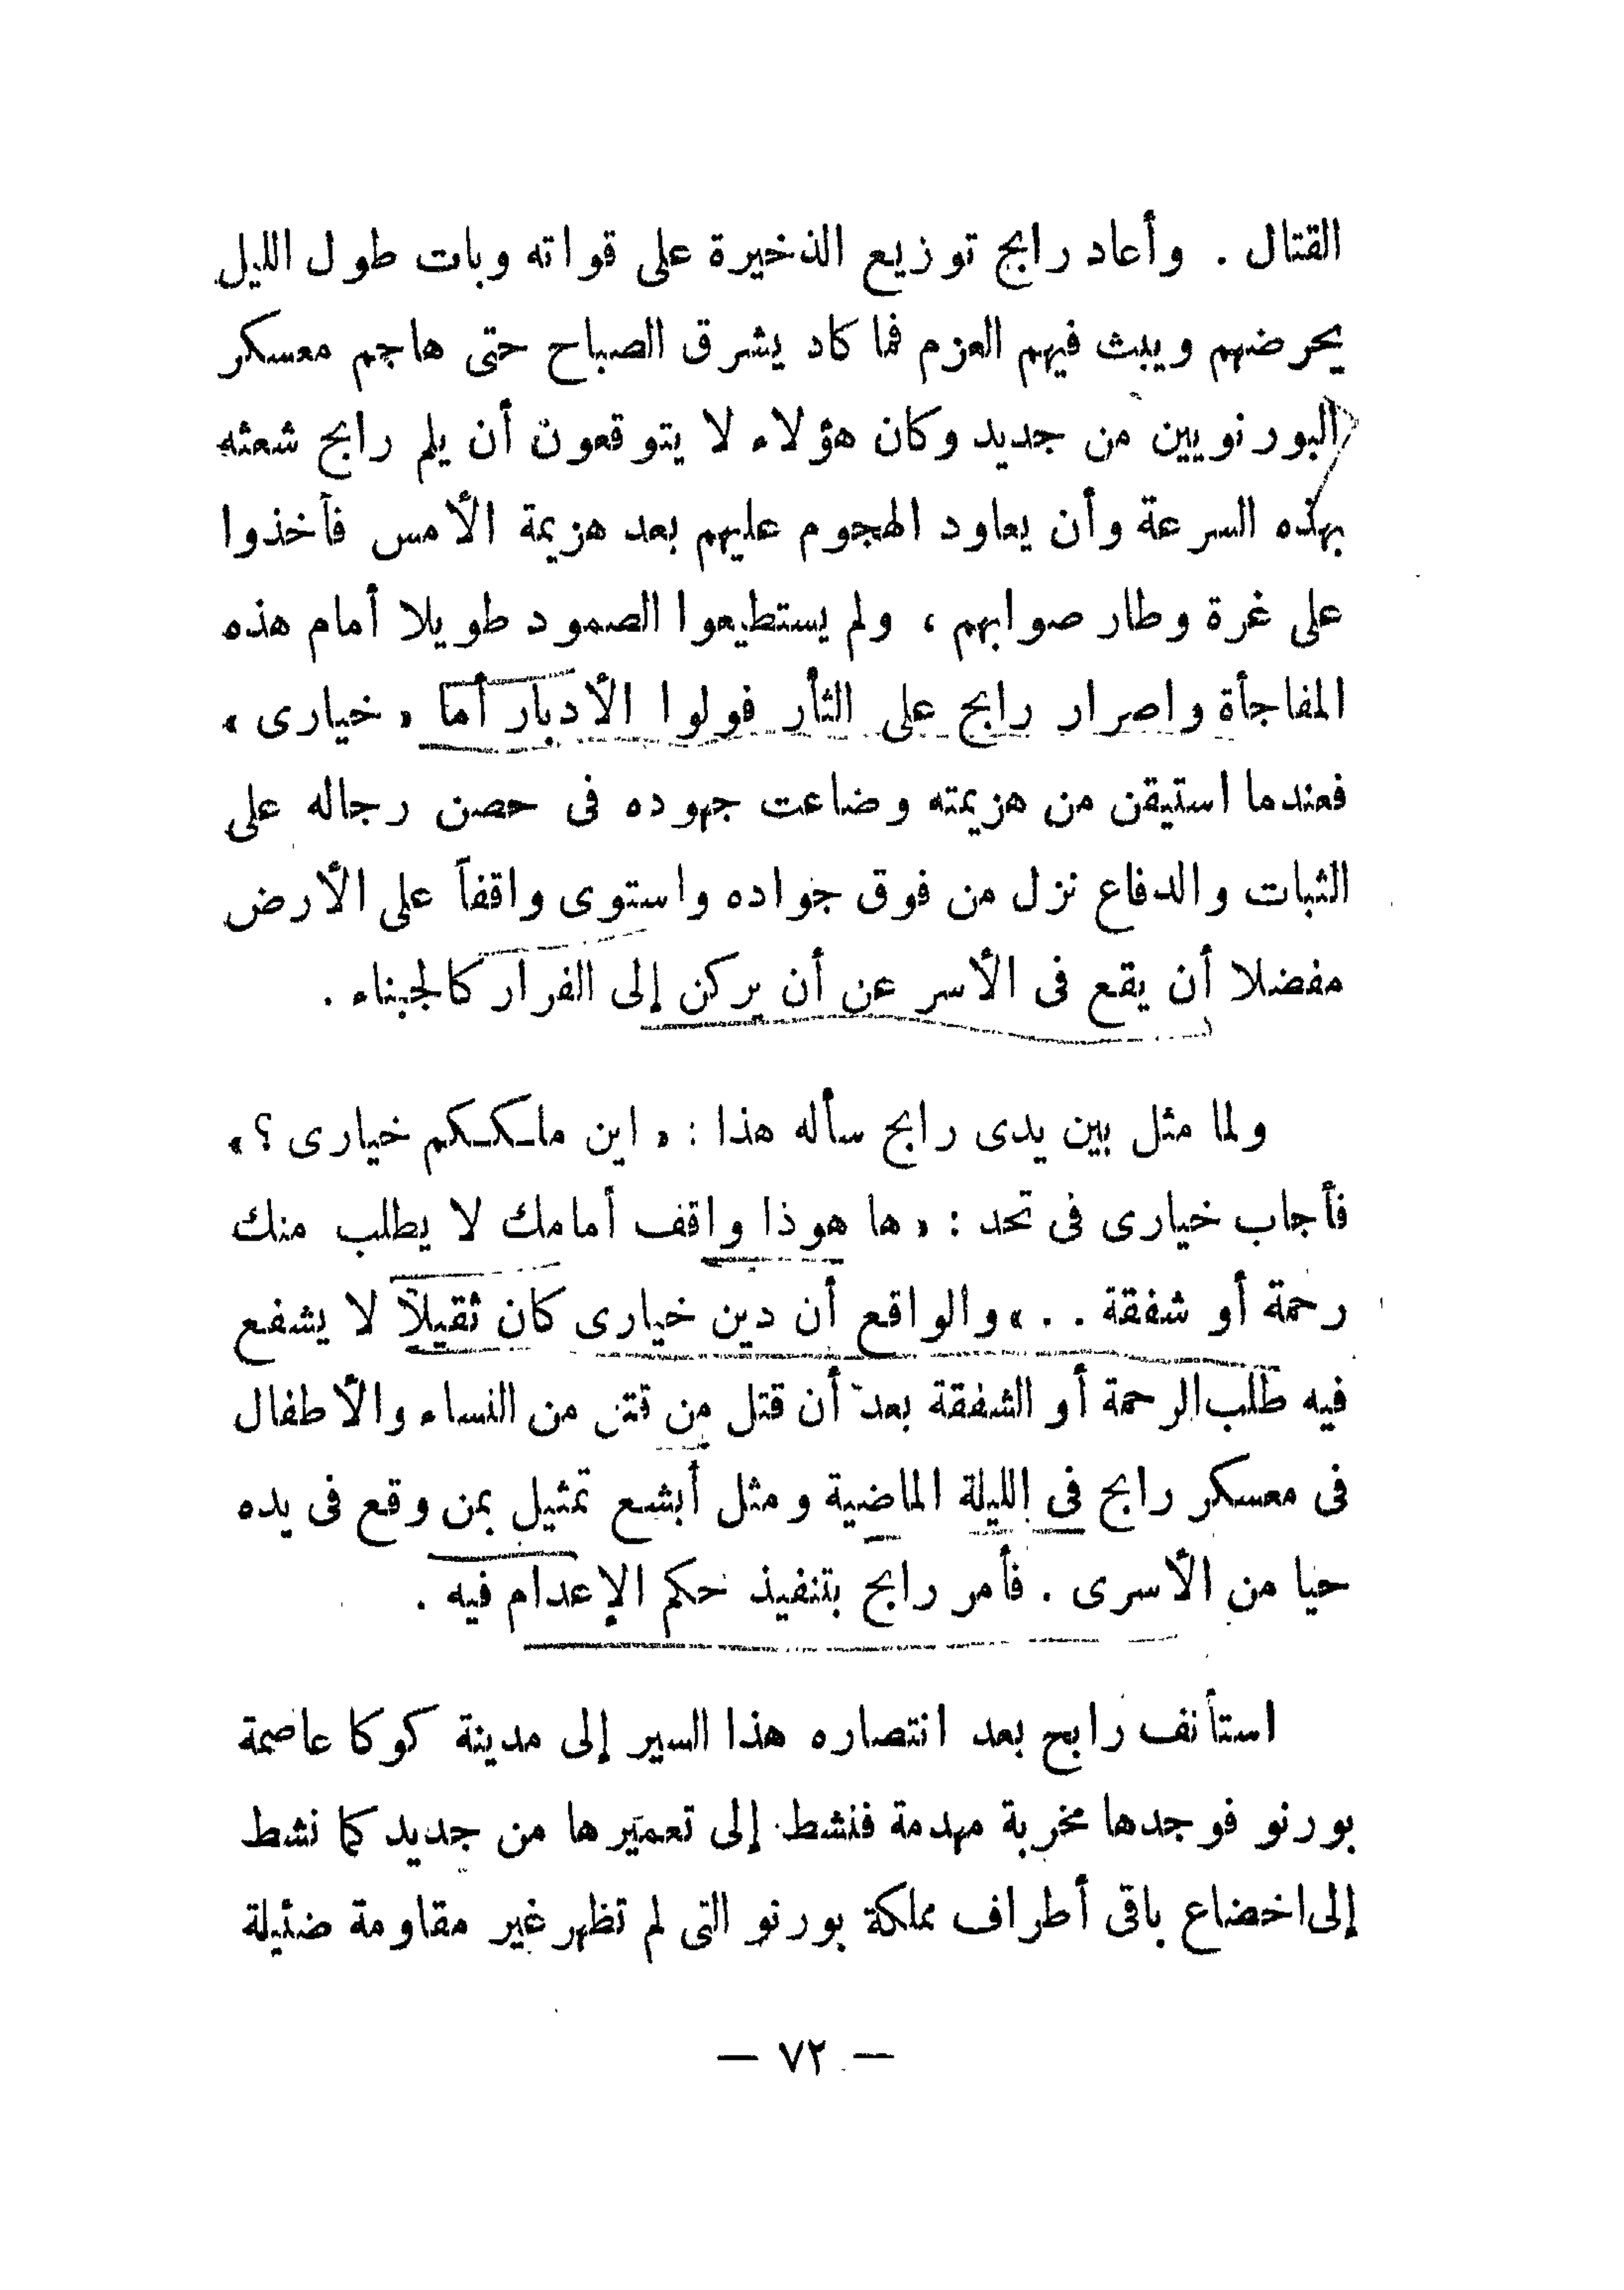 القتال . وأعاد رابح توزيع الذخيرة على قواته وبات طول الليل
يحرضهم ويبث فيهم العزم فما كاد يشرق الصباح حتى هاجم معسكر
البورنويين من جديد وكان هؤلاء لا يتوقعون أن يلم رابح شعثه
بهذه السرعة وأن يعاود الهجوم عليهم بعد هزيمة الأمس فأخذوا
على غرة وطار صوابهم ، ولم يستطيعوا الصمود طويلا أمام هذه
المفاجأة واصرار رابح على الثأر فولوا الأدبار أما « خيارى »
فعندما استيقن من هزيمته وضاعت جهوده فى حصن رجاله على
الثبات والدفاع نزل من فوق جواده واستوى واقفاً على الأرض
مفضلا أن يقع فى الأسر عن أن يركن إلى الفرار كالجبناء .
ولما مثل بين يدى رابح سأله هذا : « اين ملككم خيارى ؟ »
فأجاب خيارى فى تحد : « ها هوذا واقف أمامك لا يطلب منك
رحمة أو شفقة . . » والواقع أن دين خيارى كان ثقيلاً لا يشفع
فيه طلب الرحمة أو الشفقة بعد أن قتل من قتل من النساء والأطفال
فى معسكر رابح فى الليلة الماضية ومثل أبشع تمثيل بمن وقع فى يده
حيا من الأسرى . فأمر رابح بتنفيذ حكم الإعدام فيه .
استأنف رابح بعد انتصاره هذا السير إلى مدينة كوكا عاصمة
بورنو فوجدها مخربة مهدمة فنشط إلى تعميرها من جديد كما نشط
إلى اخضاع باقى أطراف مملكة بورنو التى لم تظهر غير مقاومة ضئيلة
— ٧٢ —